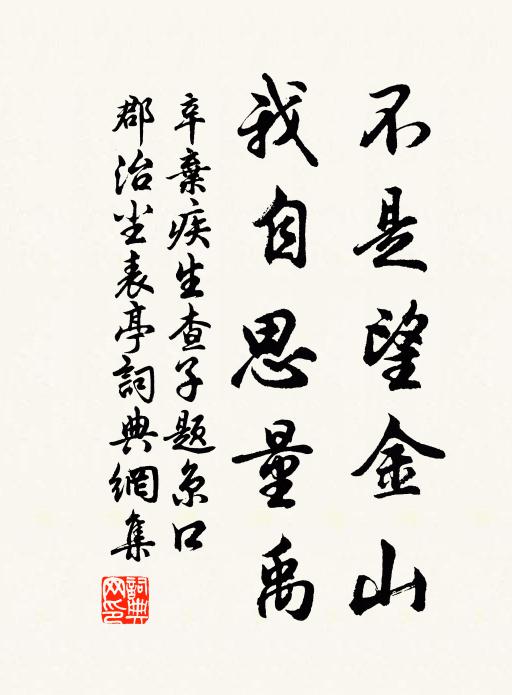 不是望金山
我自思量禹
辛棄疾生查子題京口
郡治尘表亭詞典網集
詞典網印